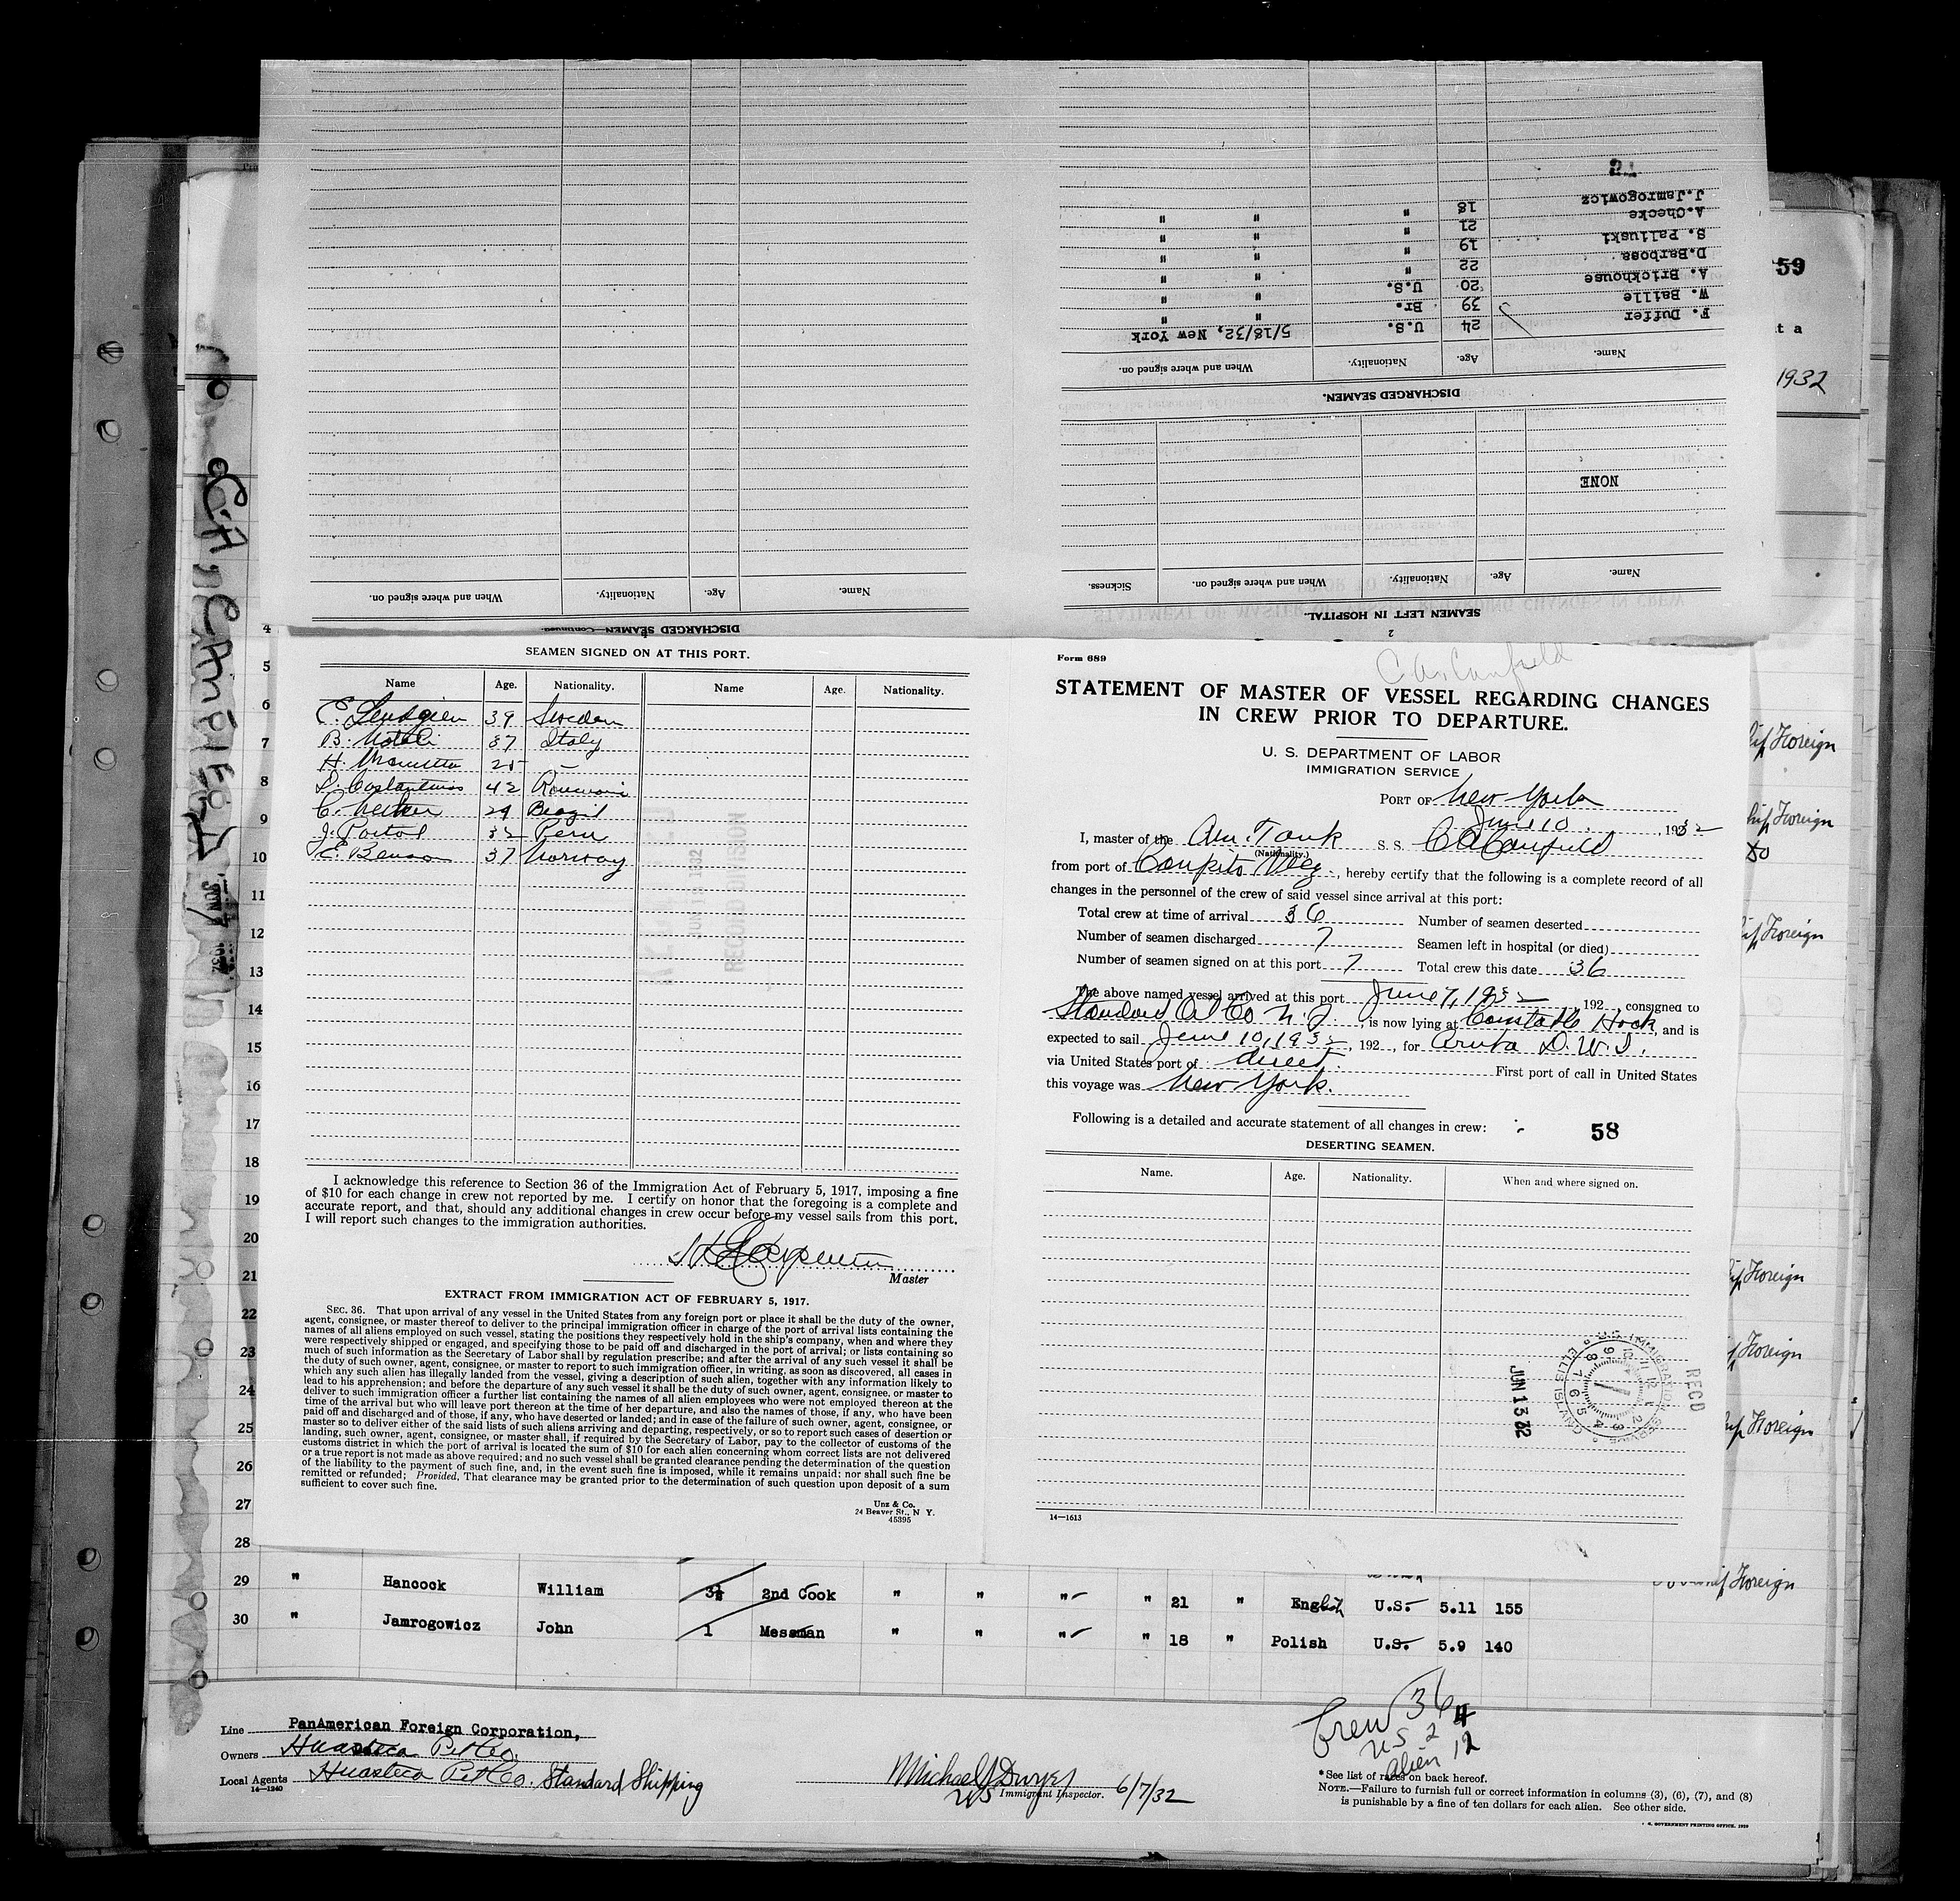 DISCHARGED SEAMEN—Continued
Name. Age. Nationality. When and where signed on.
2
SEAMEN LEFT IN HOSPITAL.
Name. Age. Nationality. When and where signed on. Sickness.
NONE
DISCHARGED SEAMEN.
Name. Age. Nationality. When and where signed on.
F. Duffer 24 U.S. 5/18/32, New York
W. Baille 39 Br. " "
A. Brickhouse 20 U.S. " "
D. Barbosa 22 " " "
S. Paliuski 19 " " "
A. Checke 21 " " "
J. Jamrogowicz 18 " " "
59
1932
SEAMEN SIGNED ON AT THIS PORT.
Name Age. Nationality. Name Age. Nationality.
39 Sweden
B. Natali 37 Italy
H. 25 —
42
C. 29 Brazil
J. 32 Peru
E. Benson 37 Norway
RECORD DIVISION
I acknowledge this reference to Section 36 of the Immigration Act of February 5, 1917, imposing a fine
of $10 for each change in crew not reported by me. I certify on honor that the foregoing is a complete and
accurate report, and that, should any additional changes in crew occur before my vessel sails from this port,
I will report such changes to the immigration authorities.
Carpenter
Master
EXTRACT FROM IMMIGRATION ACT OF FEBRUARY 5, 1917.
SEC. 36. That upon arrival of any vessel in the United States from any foreign port or place it shall be the duty of the owner,
agent, consignee, or master thereof to deliver to the principal immigration officer in charge of the port of arrival lists containing the
names of all aliens employed on such vessel, stating the positions they respectively hold in the ship's company, when and where they
were respectively shipped or engaged, and specifying those to be paid off and discharged in the port of arrival; or lists containing so
much of such information as the Secretary of Labor shall by regulation prescribe; and after the arrival of any such vessel it shall be
the duty of such owner, agent, consignee, or master to report to such immigration officer, in writing, as soon as discovered, all cases in
which any such alien has illegally landed from the vessel, giving a description of such alien, together with any information likely to
lead to his apprehension; and before the departure of any such vessel it shall be the duty of such owner, agent, consignee, or master to
deliver to such immigration officer a further list containing the names of all alien employees who were not employed thereon at the
time of the arrival but who will leave port thereon at the time of her departure, and also the names of those, if any, who have been
paid off and discharged and of those, if any, who have deserted or landed; and in case of the failure of such owner, agent, consignee, or
master so to deliver either of the said lists of such aliens arriving and departing, respectively, or so to report such cases of desertion or
landing, such owner, agent, consignee, or master shall, if required by the Secretary of Labor, pay to the collector of customs of the
customs district in which the port of arrival is located the sum of $10 for each alien concerning whom correct lists are not delivered
or a true report is not made as above required; and no such vessel shall be granted clearance pending the determination of the question
of the liability to the payment of such fine, and, in the event such fine is imposed, while it remains unpaid; nor shall such fine be
remitted or refunded; Provided, That clearance may be granted prior to the determination of such question upon deposit of a sum
sufficient to cover such fine.
Unz & Co.
24 Beaver St., N. Y.
45395
Form 689
C A Canfield
STATEMENT OF MASTER OF VESSEL REGARDING CHANGES
IN CREW PRIOR TO DEPARTURE.
U. S. DEPARTMENT OF LABOR
IMMIGRATION SERVICE
PORT OF New York
June 10, 1932
I, master of the Am. Tank S. S. C A Canfield
(Nationality)
from port of , hereby certify that the following is a complete record of all
changes in the personnel of the crew of said vessel since arrival at this port:
Total crew at time of arrival 36 Number of seamen deserted
Number of seamen discharged 7 Seamen left in hospital (or died)
Number of seamen signed on at this port 7 Total crew this date 36
The above named vessel arrived at this port June 7, 1932, 192 , consigned to
Standard Oil Co N.J., is now lying at Constable Hook, and is
expected to sail June 10, 1932, 192 , for Aruba D.W.I.
via United States port of direct. First port of call in United States
this voyage was New York.
Following is a detailed and accurate statement of all changes in crew:
58
DESERTING SEAMEN.
Name. Age. Nationality. When and where signed on.
U.S. IMMIGRATION SERVICE ELLIS ISLAND
JUN 13 32
REC'D
14—1613
4
5
6
7
8
9
10
11
12
13
14
15
16
17
18
19
20
21
22
23
24
25
26
27
28
29 " Hancock William 2nd Cook " " " " 21 " English U.S. 5.11 155
30 " Jamrogowicz John 1 Messman " " " " 18 " Polish U.S. 5.9 140
Foreign
Foreign
Foreign
Foreign
Foreign
Foreign
Foreign
Line PanAmerican Foreign Corporation,
Owners Huasteca Pet Co.
Local Agents Huasteca Pet Co. Standard Shipping
14—1240
Michael J Dwyer 6/7/32
Immigrant Inspector.
Crew 36
US 24
alien 12
*See list of races on back hereof.
NOTE.—Failure to furnish full or correct information in columns (3), (6), (7), and (8)
is punishable by a fine of ten dollars for each alien. See other side.